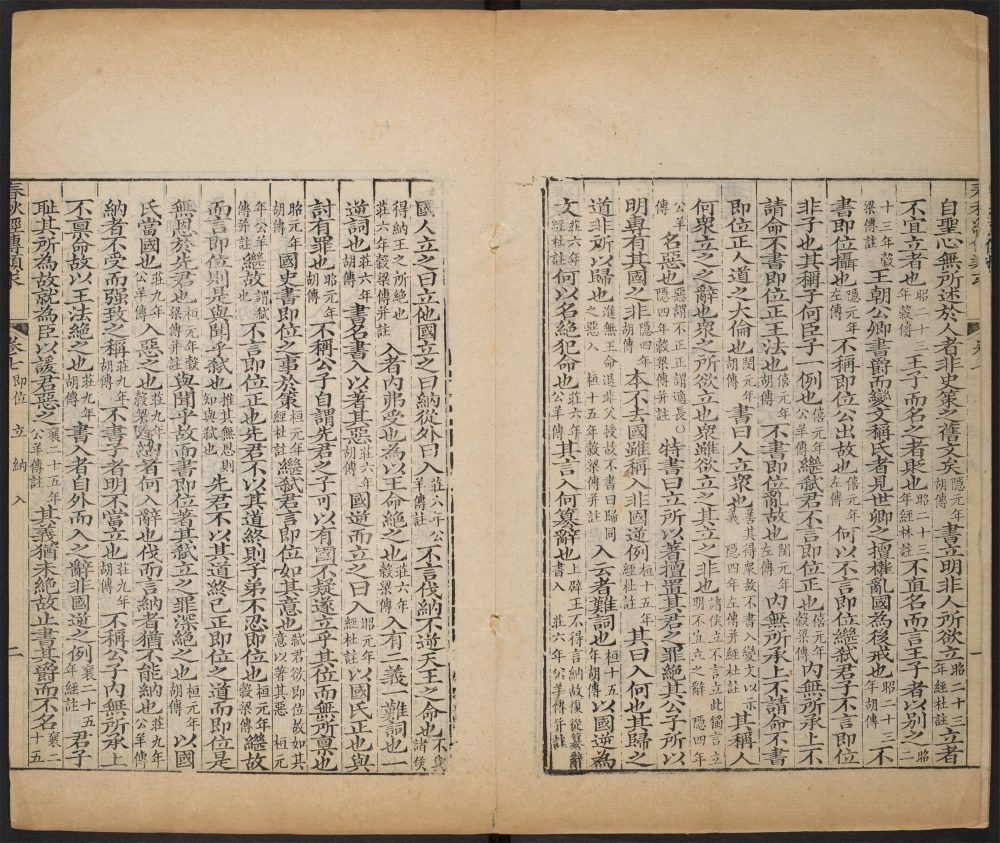 自聖心無所述於人者非史策之舊文矣隱元年胡傳書立明非人所欲立昭二十三年經杜註立者
不宜立者也昭二十三年穀傳王子而名之者貶也昭二十三年經林註不直名而言王子者以別之二
十三年穀梁傳註王朝公卿書爵而變文稱氏者見世卿之擅權亂國為後戒也昭二十三年胡傳不
書即位攝也隱元年左傳不稱即位公出故也僖元年左傳何以不言即位繼弒君子不言即位
非子也其稱子何臣子一例也僖元年公羊傳繼弒君不言即位正也僖元年穀梁傳內無所承上不
請命不書即位正王法也僖元年胡傳不書即位亂故也閔元年左傳內無所承上不請命不書
即位正人道之大倫也閔元年胡傳書曰人立眾也善其得眾故不書入變文以示義 隱四年左傳并經杜註其稱人
何眾立之之辭也眾之所欲立也眾雖欲立之其立之非也諸侯立不言立此獨言立明不宜立之辭 隱四年
公羊傳名惡也惡謂不正正謂適長○隱四年穀梁傳并註特書曰立所以著擅置其君之罪絕其公子所以
明專有其國之非隱四年胡傳本不去國雖稱入非國逆例桓十五年經杜註其曰入何也其歸之
道非所以歸也桓十五年穀梁傳并註入云者難詞也胡傳以國逆為
文莊六年經杜註何以名絕犯命也莊六年公羊傳其言入何篡辭也上辟王不得言納故復從篡辭書入 莊六年公羊傳并註
國人立之曰立他國立之曰納從外曰入莊六年公羊傳註不言伐納不逆天王之命也不與諸侯
得納王之所絕也莊六年穀梁傳并註入者內弗受也為以王命絕之也莊六年穀梁傳并註入有二義一難詞也一
逆詞也莊六年胡傳書名書入以著其惡莊六年胡傳國逆而立之曰入昭元年經杜註以國氏正也與
討有罪也昭元年胡傳不稱公子自謂先君之子可以有國不疑遂立乎其位而無所稟也
昭元年胡傳國史書即位之事於策桓元年經杜註繼弒君言即位如其意也弒君欲即位故如其意以著其惡 桓元
年公羊傳并註繼故也謂弒不言即位正也先君不以其道終則子弟不忍即位也桓元年穀梁傳繼故
而言即位則是與聞乎弒也推其無恩則知與弒也先君不以其道終己正即位之道而即位是
無恩於先君也桓元年穀梁傳并註與聞乎故而書即位著其弒立之罪深絕之也桓元年胡傳以國
氏當國也莊九年公羊傳入惡之也莊九年穀梁傳納者何入辭也伐而言納者猶不能納也莊九年公羊傳
納者不受而强致之稱莊九年胡傳不書子者明不當立也莊九年胡傳不稱公子內無所承上
不稟命故以王法絕之也莊九年胡傳書入者自外而入之辭非國逆之例襄二十五年經註君子
耻其所為故就為臣以諼君惡之襄二十五年公羊傳註其義猶未絕故止書其爵而不名襄二十五
春秋經傳類求 卷七 即位 立 納 入 二